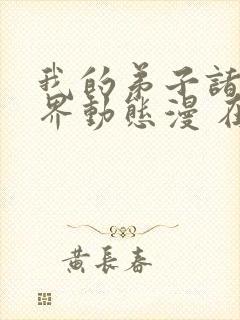 我的弟子諸
界動態漫 在
黄長春